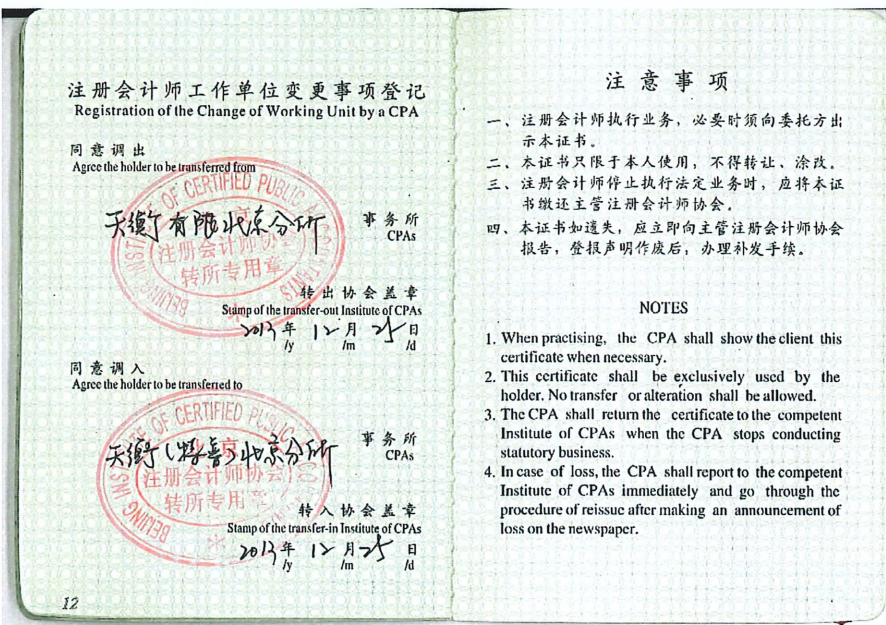 注册会计师工作单位变更事项登记
Registration of the Change of Working Unit by a CPA
同意调出
Agree the holder to be transferred from
天衡有限北京分所
事务所
CPAs
BEIJING INSTITUTE OF CERTIFIED PUBLIC ACCOUNTANTS
北京
注册会计师协会
转所专用章
转出协会盖章
Stamp of the transfer-out Institute of CPAs
2013年 12月 25日
/y /m /d
同意调入
Agree the holder to be transferred to
天衡(特普)北京分所
事务所
CPAs
北京
注册会计师协会
转所专用章
转入协会盖章
Stamp of the transfer-in Institute of CPAs
2013年 12月 25日
/y /m /d
12
注意事项
一、注册会计师执行业务，必要时须向委托方出
示本证书。
二、本证书只限于本人使用，不得转让、涂改。
三、注册会计师停止执行法定业务时，应将本证
书缴还主管注册会计师协会。
四、本证书如遗失，应立即向主管注册会计师协会
报告，登报声明作废后，办理补发手续。
NOTES
1. When practising, the CPA shall show the client this
certificate when necessary.
2. This certificate shall be exclusively used by the
holder. No transfer or alteration shall be allowed.
3. The CPA shall return the certificate to the competent
Institute of CPAs when the CPA stops conducting
statutory business.
4. In case of loss, the CPA shall report to the competent
Institute of CPAs immediately and go through the
procedure of reissue after making an announcement of
loss on the newspaper.